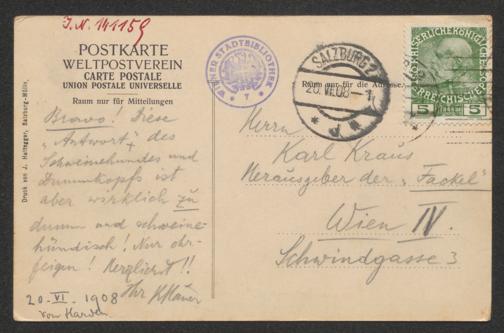 I.N. 141159
POSTKARTE
WELTPOSTVEREIN
CARTE POSTALE
UNION POSTALE UNIVERSELLE
Raum nur für Mitteilungen
WIENER STADTBIBLIOTHEK
SALZBURG 2
20.VI.08
Raum nur für die Adresse
5 5
Bravo! Diese
„Antwort" des
Schweinehundes und
Dummkopfs ist
aber wirklich zu
dumm und schweine-
hündisch! Nur ohr-
feigen! Herzlichst!!
Ihr
20.-VI. 1908
von Harden
Druck von J. Huttegger, Salzburg-Mülln.
Herrn
Karl Kraus
Herausgeber der „Fackel"
Wien IV.
Schwindgasse 3